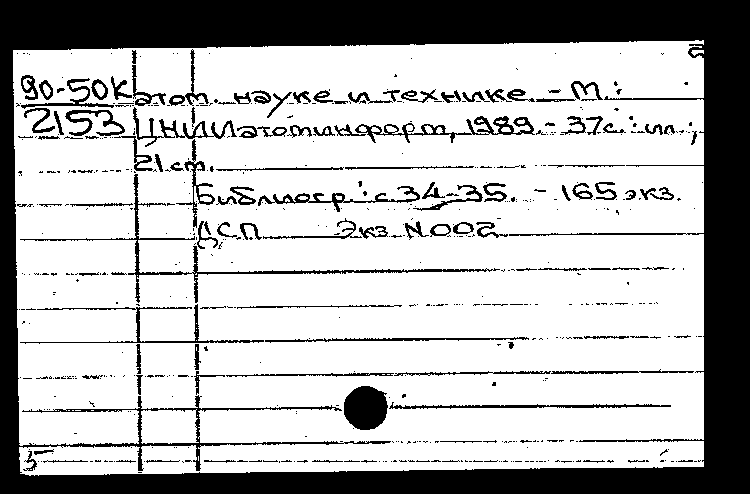 90-50К атом. науке и технике. - М.:
2153 ЦНИИатоминформ, 1989. - 37с.: ил.;
21 см.
Библиогр.: с 34-35. - 165 экз.
ДСП Экз N 002
5